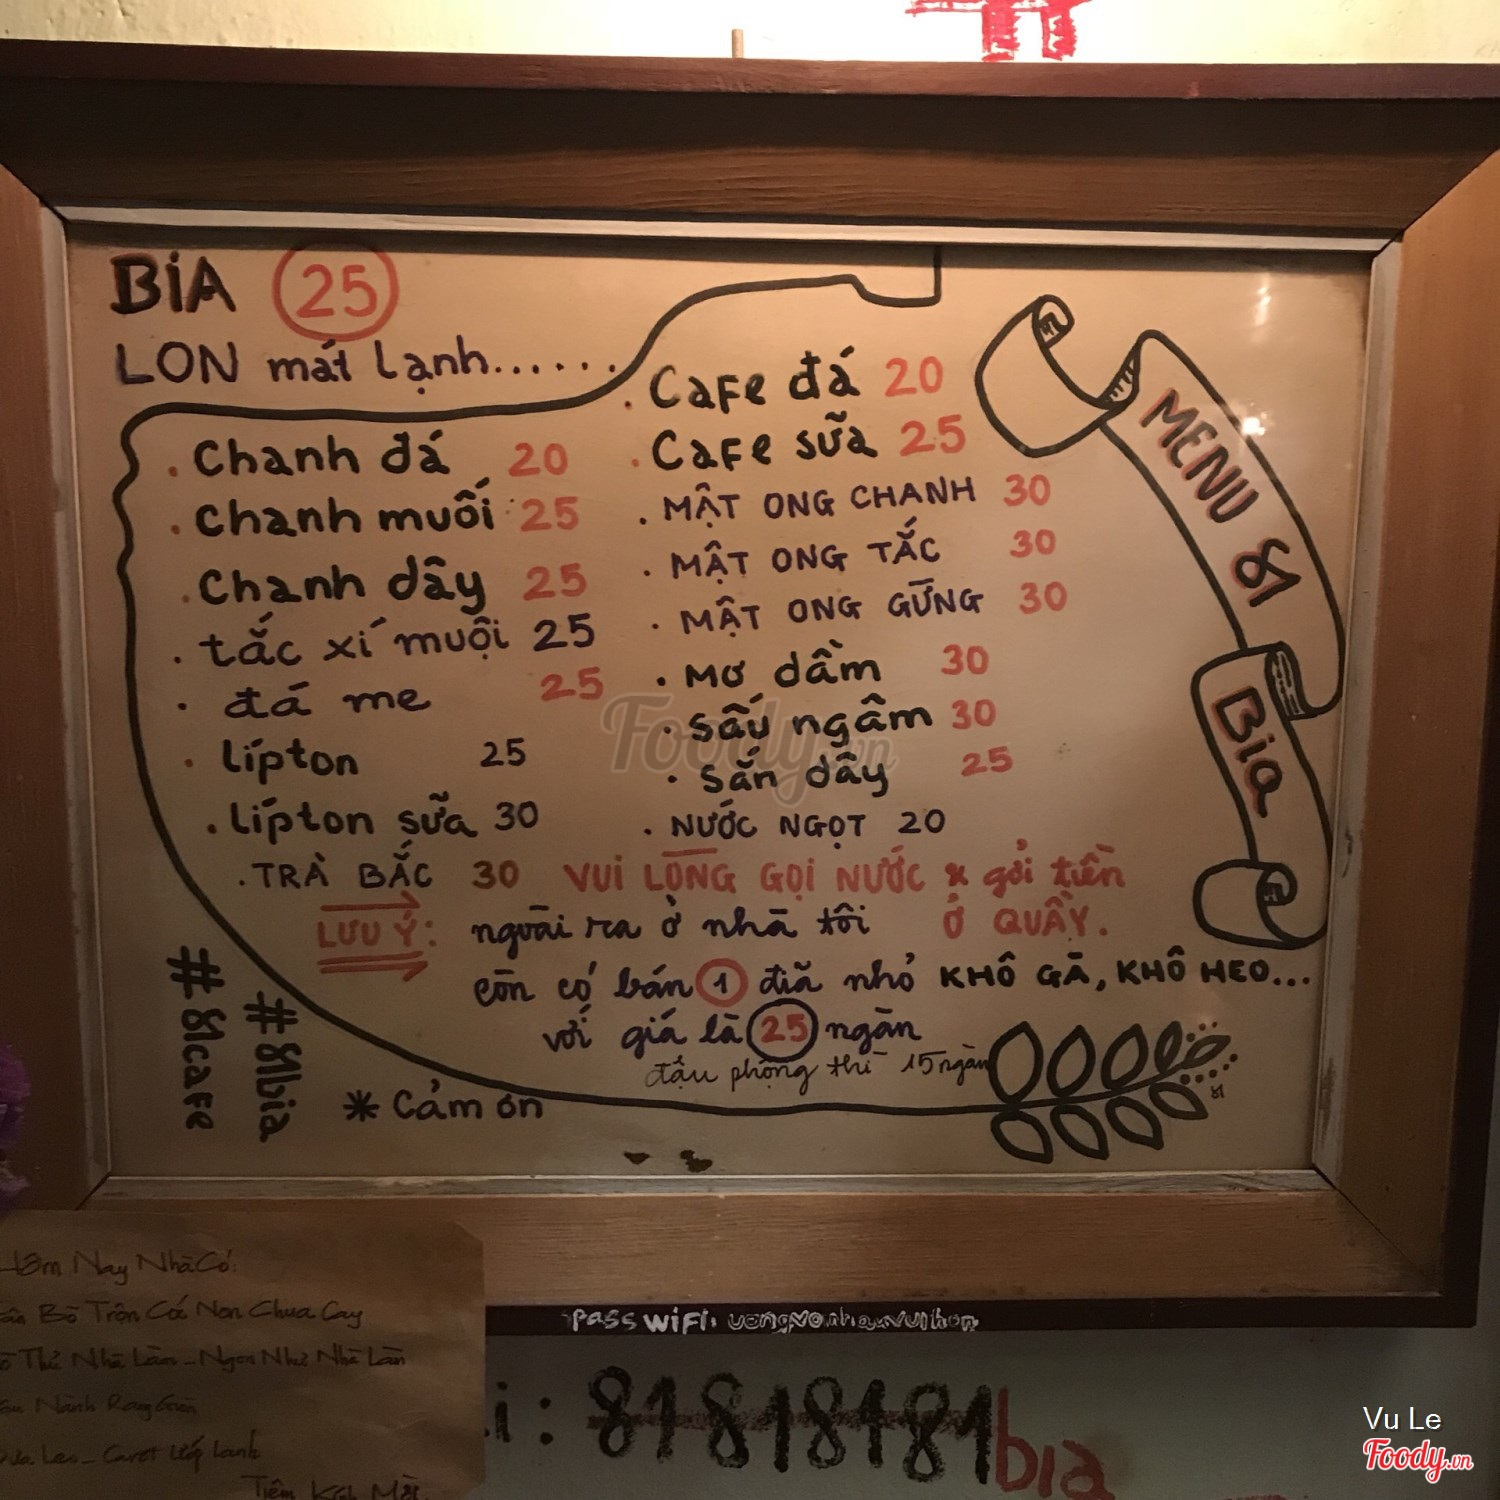 BIA 25
LON mát lạnh......
. Chanh đá 20
. Chanh muối 25
. Chanh dây 25
. tắc xí muội 25
. đá me 25
. lípton 25
. lípton sữa 30
. TRÀ BẮC 30
. Cafe đá 20
. Cafe sữa 25
. MẬT ONG CHANH 30
. MẬT ONG TẮC 30
. MẬT ONG GỪNG 30
. Mơ dầm 30
. Sấu ngâm 30
. Sắn dây 25
. NƯỚC NGỌT 20
VUI LÒNG GỌI NƯỚC & gởi tiền
Ở QUẦY.
LƯU Ý: ngoài ra ở nhà tôi
còn có bán 1 đĩa nhỏ KHÔ GÀ, KHÔ HEO...
với giá là 25 ngàn
đậu phộng thì 15 ngàn
81
* Cảm ơn
#81bia
#81cafe
MENU 81
Bia
Hôm Nay Nhà Có:
Bò Trộn Cóc Non Chua Cay
Thứ Nhà Làm _ Ngon Như Nhà Làm
Nành Rang Giòn
Leo _ Carot Ướp Lạnh
Tiệm Kính Mời.
Pass WiFi:
i : 81818181bia
Foody.vn
Vu Le
Foody.vn